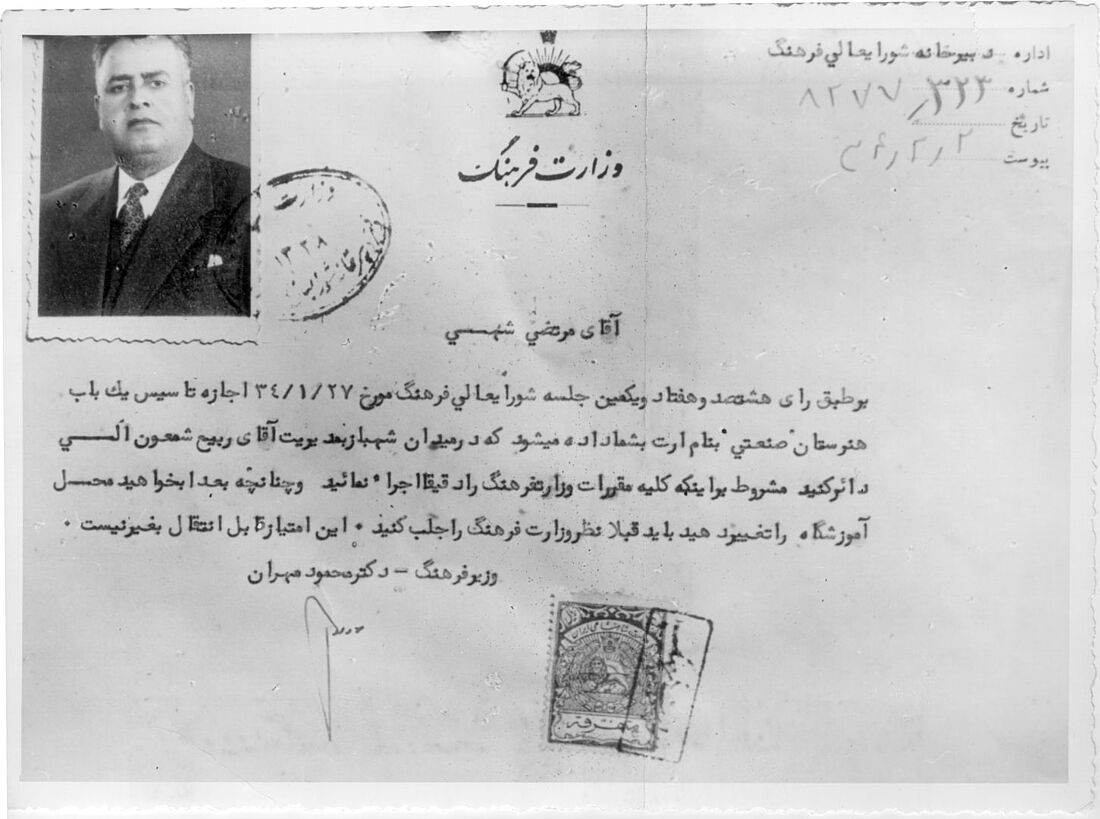 اداره دبیرخانه شورایعالی فرهنگ
شماره ۸۲۷۷/۳۲۳
تاریخ
پیوست
وزارت فرهنگ
وزارت
۱۳۲۸
آقای مرتضی شهمی
برطبق رای هشتصد و هفتاد ویکمین جلسه شورایعالی فرهنگ مورخ ۳٤/۱/۲۷ اجازه تاسیس یك باب
هنرستان "صنعتی" بنام ارت بشماداده میشود که درمیدان شهبازبمدیریت آقای ربیع شمعون الی
دائرکنید مشروط براینکه کلیه مقررات وزارتفرهنگ رادقیقااجراء نمائید وچنانچه بعدابخواهید محل
آموزشگاه راتغییردهید باید قبلا نظروزارت فرهنگ راجلب کنید ۰ این امتیازقابل انتقال بغیرنیست ۰
وزیرفرهنگ – دکترمحمود مهران
متفرقه